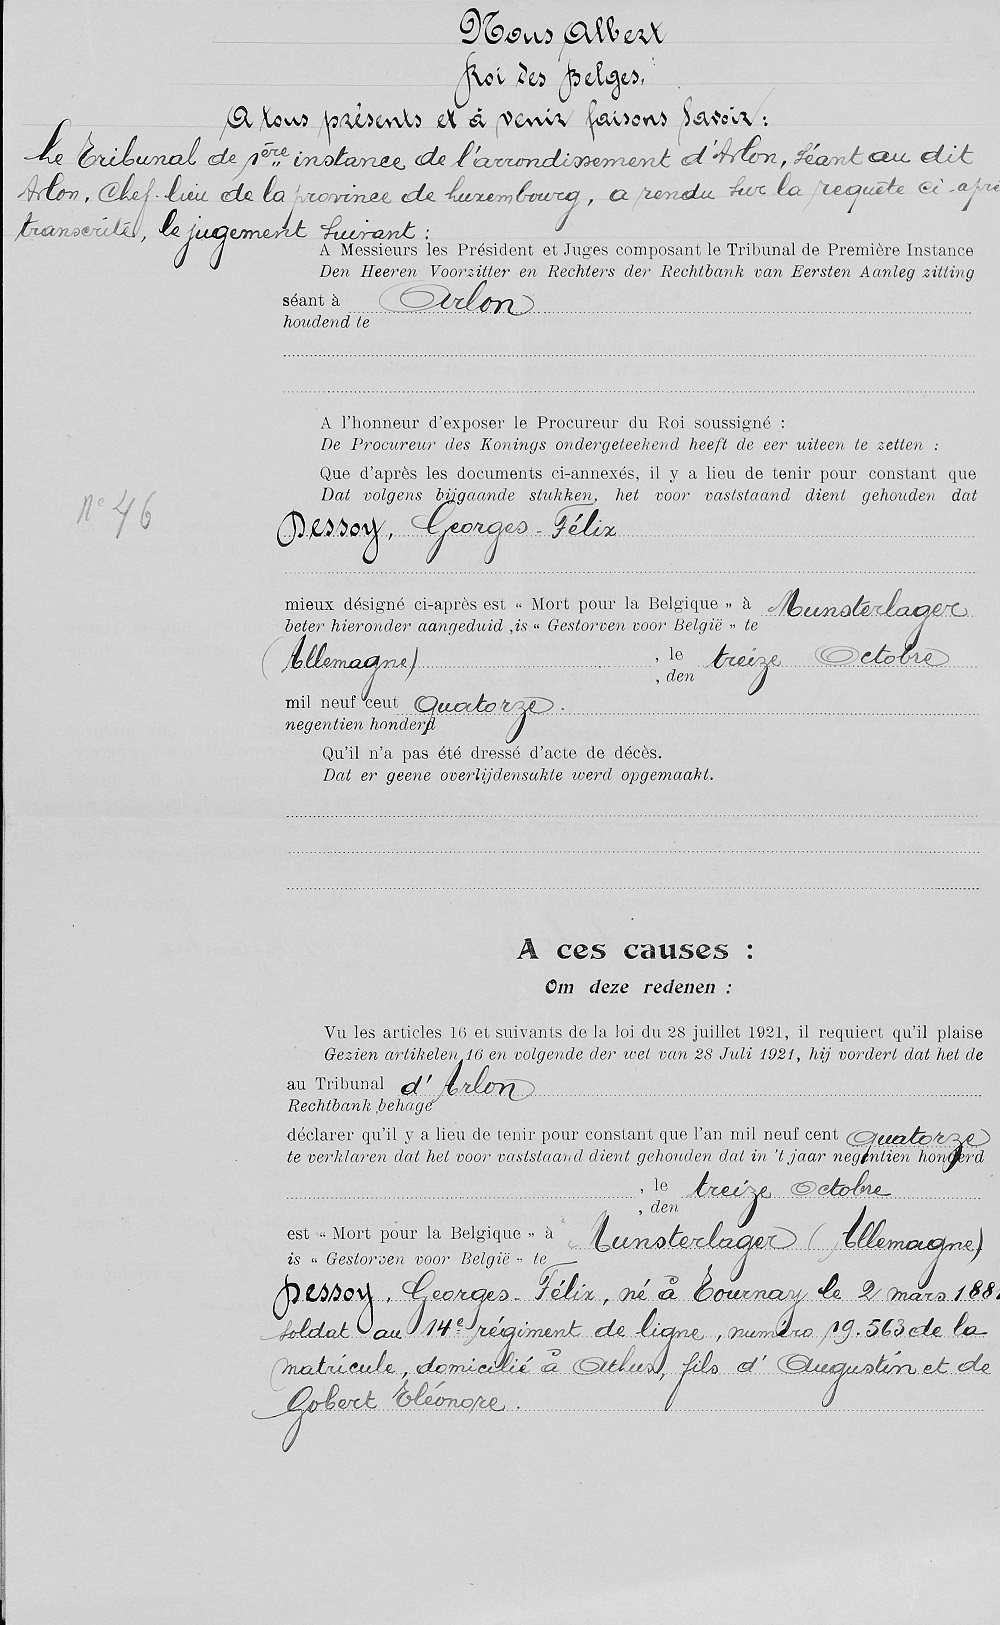 Nous Albert
Roi des Belges.
A tous présents et à venir faisons savoir :
Le Tribunal de 1ère instance de l'arrondissement d'Arlon, séant au dit
Arlon, Chef-lieu de la province de Luxembourg, a rendu sur la requête ci-apr
transcrite, le jugement suivant :
A Messieurs les Président et Juges composant le Tribunal de Première Instance
Den Heeren Voorzitter en Rechters der Rechtbank van Eersten Aanleg zitting
séant à Arlon
houdend te
A l'honneur d'exposer le Procureur du Roi soussigné :
De Procureur des Konings ondergeteekend heeft de eer uiteen te zetten :
Que d'après les documents ci-annexés, il y a lieu de tenir pour constant que
Dat volgens bijgaande stukken, het voor vaststaand dient gehouden dat
N° 46
Dessoy, Georges-Félix
mieux désigné ci-après est « Mort pour la Belgique » à Munsterlager
beter hieronder aangeduid ,is « Gestorven voor België » te
(Allemagne) , le treize Octobre
, den
mil neuf cent quatorze.
negentien honderd
Qu'il n'a pas été dressé d'acte de décès.
Dat er geene overlijdensakte werd opgemaakt.
A ces causes :
Om deze redenen :
Vu les articles 16 et suivants de la loi du 28 juillet 1921, il requiert qu'il plaise
Gezien artikelen 16 en volgende der wet van 28 Juli 1921, hij vordert dat het de
au Tribunal d'Arlon
Rechtbank behage
déclarer qu'il y a lieu de tenir pour constant que l'an mil neuf cent quatorze
te verklaren dat het voor vaststaand dient gehouden dat in 't jaar negentien honderd
, le treize Octobre
, den
est « Mort pour la Belgique » à Munsterlager (Allemagne)
is « Gestorven voor België » te
Dessoy, Georges-Félix, né à Tournay le 2 mars 188
soldat au 14e régiment de ligne, numéro 19.563 de la
matricule, domicilié à Athus, fils d'Augustin et de
Gobert Eléonore.